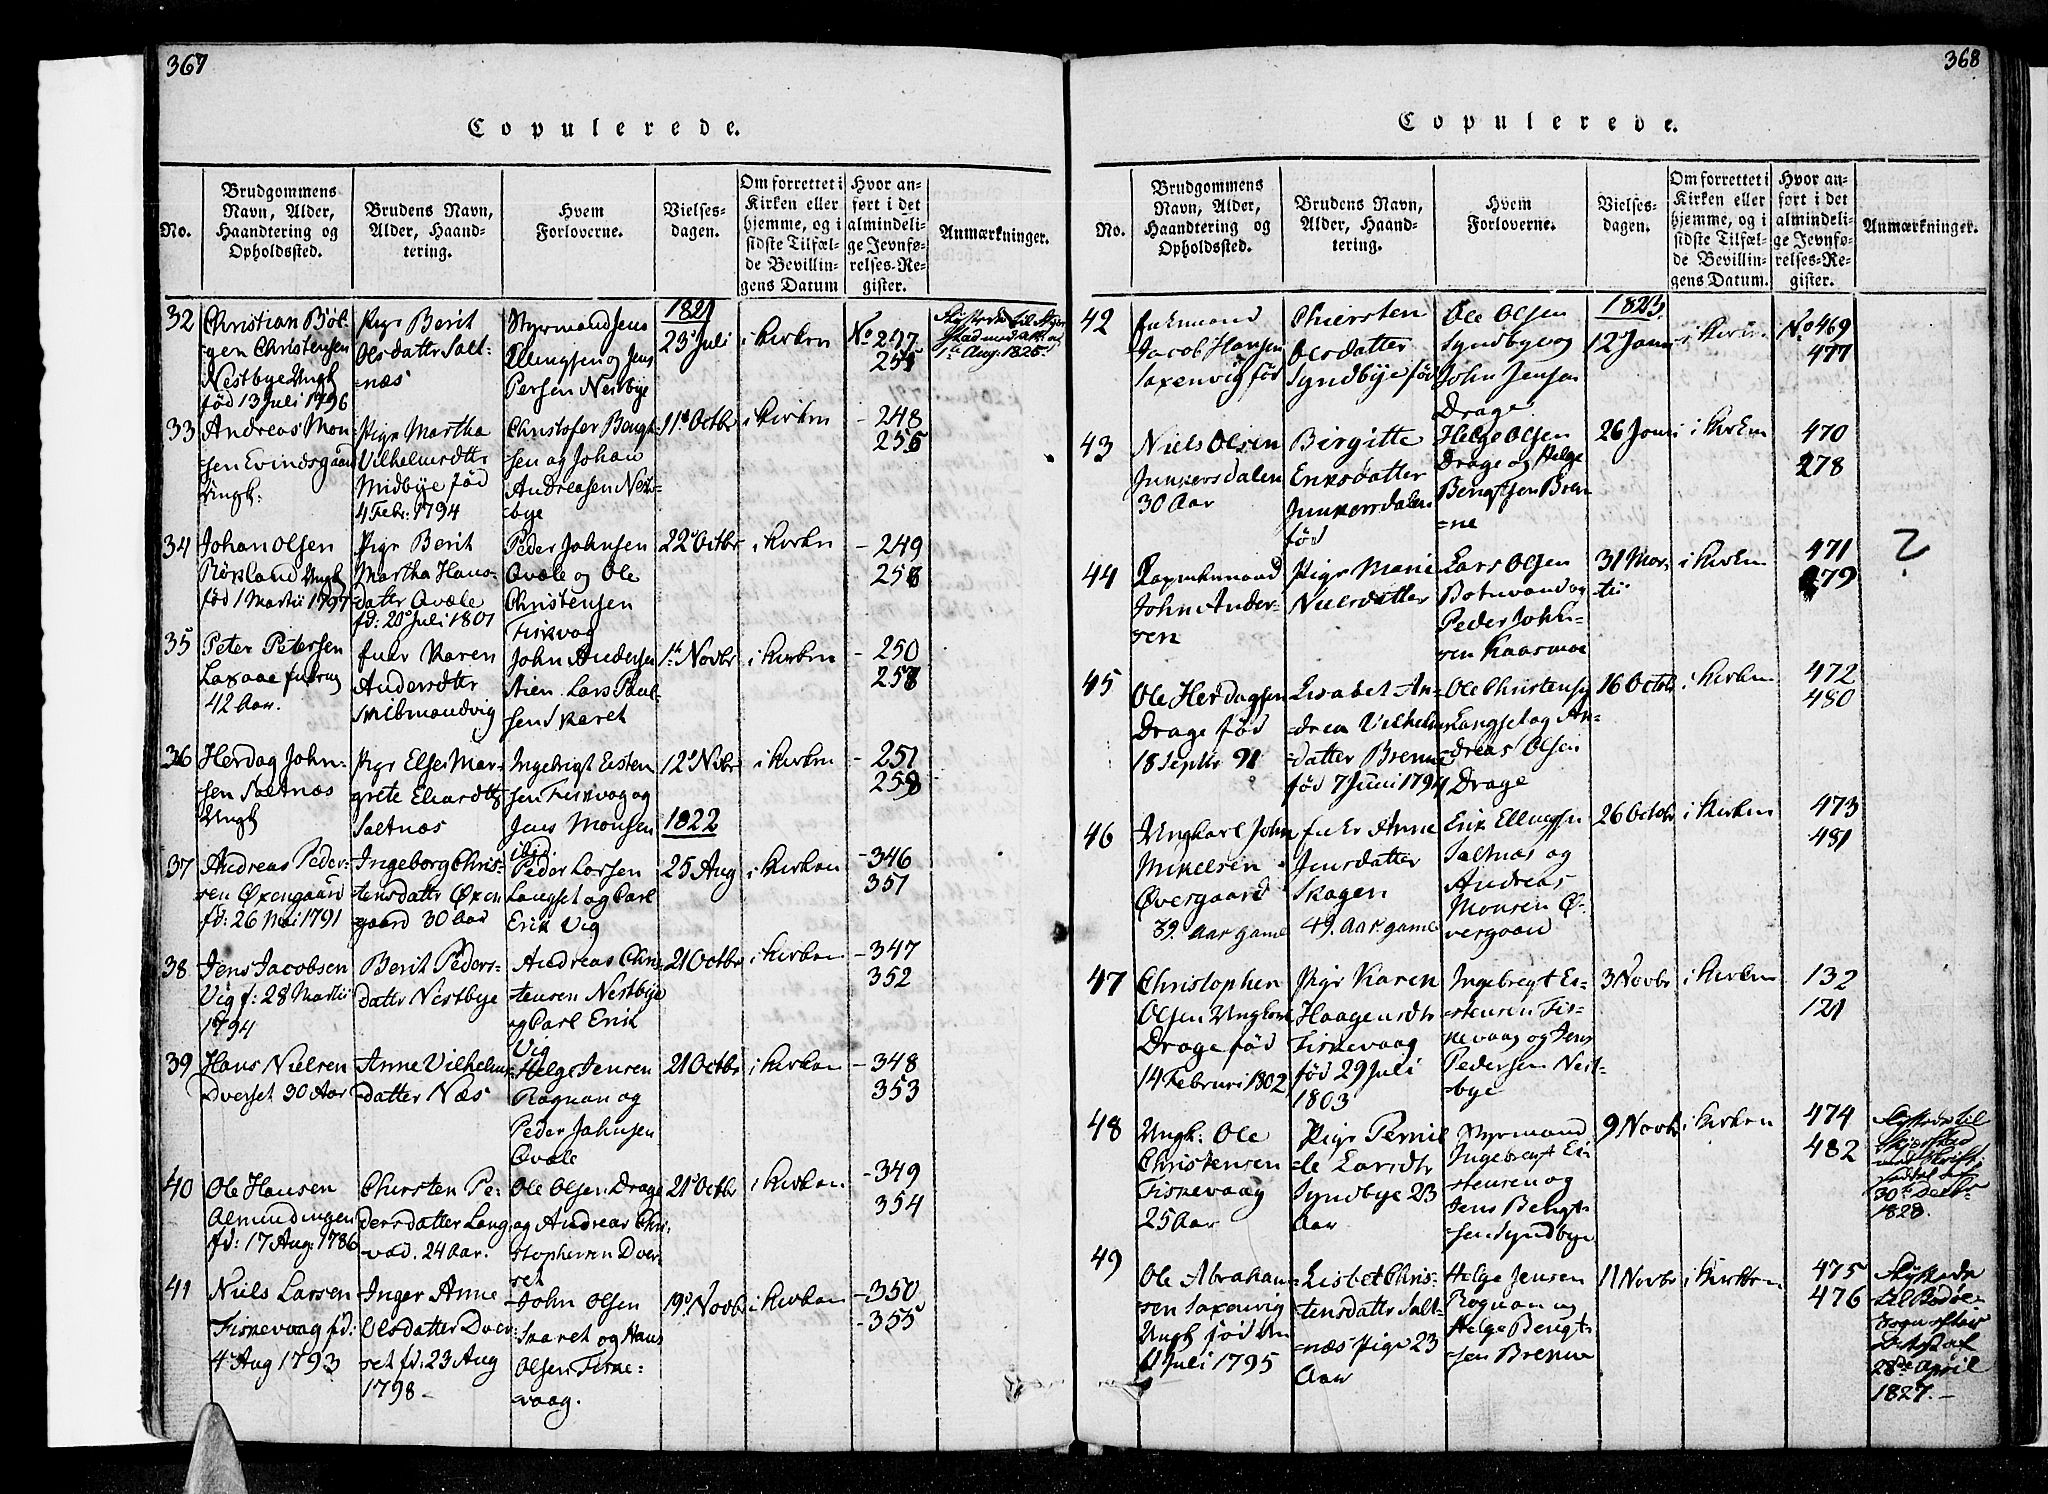 367
Copulerede.
No.
Brudgommens
Navn, Alder,
Haandtering og
Opholdssted.
Brudens Navn,
Alder, Haand-
tering.
Hvem
Forloverne.
Vielses-
dagen.
Om forrettet i
Kirken eller
hjemme, og i
sidste Tilfæl-
de Bevillin-
gens Datum
Hvor an-
ført i det
almindeli-
ge Jevnfø-
relses-Re-
gister.
Anmærkninger.
32
Christian Böt-
gen Christensen
Nestbye Ungk
fød 13 Juli 1796
Pige Berit
Olsdatter Salt-
næs
Styrmand Jens
Ellingsen og Jens
Persen Nestbye
1821
23 Juli
i Kirken
No 247
255
1te Aug. 1825
33
Andreas Mon-
sen Evindsgaard
Ungk:
Pige Martha
Vilhelmsdtter
Midbye fød
4 Febr: 1794
Christofer Bengt-
sen og Johan
Andreasen Nest-
bye
11te Octbr
i Kirken
- 248
256
34
Johan Olsen
Røkland Ungk
fød 1 Martii 1797
Pige Berit
Martha Hans-
datter Qvæle
fd: 20 Juli 1801
Peder Johnsen
Qvæle og Ole
Christensen
Fiskvag
22 Octbr
i Kirken
- 249
258
35
Peter Petersen
Laxaae Enkem
42 Aar.
Enke Karen
Andersdtter
Skibmandvig
John Andersen
Lars Paul-
sen Skaret
1te Novbr
i Kirken
- 250
257
36
Herdag John-
sen Saltnæs
Ungk
Pige Else Mar-
grete Eliardttr
Saltnæs
Ingebrigt Eisten
sen Fiskvag og
Jens Monsen
ibid
12 Nvbr
i Kirken
- 251
259
1822
37
Andreas Peder-
sen Øxengaard
fd: 26 Mai 1791
Ingeborg Chris-
tensdatter Øxen
gaard 30 Aar
Peder Larsen
Langset og Carl
Erik Vig
25 Aug
i Kirken
- 346
351
38
Jens Jacobsen
Vig f: 28 Martii
1794
Berit Peders-
datter Nestbye
Andreas Chris-
tensen Nestbye
og Carl Erik
Vig
21 Octbr
i Kirken
- 347
352
39
Hans Nielsen
Dverset 30 Aar
Anne Vilhelms-
datter Næs
Helge Jensen
Rognan og
Peder Johnsen
Qvæle
21 Octbr
i Kirken
- 348
353
40
Ole Hansen
Almindingen
fd: 17 Aug: 1786
Chirsten Pe-
dersdatter Lang
vad. 24 Aar.
Ole Olsen Drage
og Andreas Chri-
stophersen Dver-
set
21 Octbr
i Kirken
- 349
354
41
Niels Larsen
Fiskevaag fd:
4 Aug 1793
Inger Anne
Olsdatter Dver-
set fd: 23 Aug
1798 -
John Olsen
Skaret og Hans
Olsen Fiske-
vaag.
19 Novb
i Kirken
- 350
- 355
368
Copulerede.
No.
Brudgommens
Navn, Alder,
Haandtering og
Opholdssted.
Brudens Navn,
Alder, Haand-
tering.
Hvem
Forloverne.
Vielses-
dagen.
Om forrettet i
Kirken eller
hjemme, og i
sidste Tilfæl-
de Bevillin-
gens Datum.
Hvor an-
ført i det
almindeli-
ge Jevnfø-
relses-Re-
gister.
Anmærkninger.
42
Enkemand
Jacob Hansen
Saxenvig fød
Chiersten
Olsdatter
Syndbye fød
Ole Olsen
Syndbye og
John Jensen
Drage
1823
12 Janu
i Kirken
No 469
477
43
Niels Olsen
Junkersdalen
30 Aar
Birgitte
Eriksdatter
Junkersdalen
fød
Helge Olsen
Drage og Helge
Bengtsen Bren-
=ne
26 Janu
i Kirken
470
278
44
John Ander-
sen
Pige Marie
Nielsdatter
Lars Olsen
Botnvand og
Peder John-
sen Kaasmoe
31 Mar-
tii
i Kirken
471
479
?
45
Ole Herdagsen
Drage fød
18 Septbr 91
Lisabet An-
drea Vilhelms
datter Brenne
fød 7 Juni 1794
Ole Christensen
Langset og An-
dreas Olsen
Drage
16 Octbr
i Kirken
472
480
46
Ungkarl John
Mikelsen
Øvergaard
39. Aar gaml
Enke Anne
Jensdatter
Skagen
49. Aar gaml
Erik Ellingsen
Saltnæs og
Andreas
Monsen Ø-
vergaard
26 Octbr
i Kirken
473
481
47
Christopher
Olsen Ungkarl
Drage fød
14 Februri 1802
Pige Karen
Haagensdtr
Fiskevaag
fød 29 Juli
1803
Ingebregt Ei-
stensen Fis-
kevaag og Jens
Pedersen Nest-
bye
3 Novbr
i Kirken
132
121
48
Ungk: Ole
Christensen
Fiskevaag
25 Aar
Pige Pernil
le Larsdtr
Syndbye 23
Aar
Styrmand
Ingebregt Ei-
stensen og
Jens Bengt-
sen Syndbye
9 Novbr
i Kirken
474
482
flyttede til
Skjerstad
30te Decbr
1828.
49
Ole Abraham
sen Saxenvig
Ungk fød den
11 Juli 1795
Lisbet Chris-
tensdatter Salt-
næs Pige 23
Aar
Helge Jensen
Rognan og
Helge Bengt-
sen Brenne
11 Novbr
i Kirken
475
476
flyttede
til Bodøe
Sogn efter
Attest af
28de April
1827. -